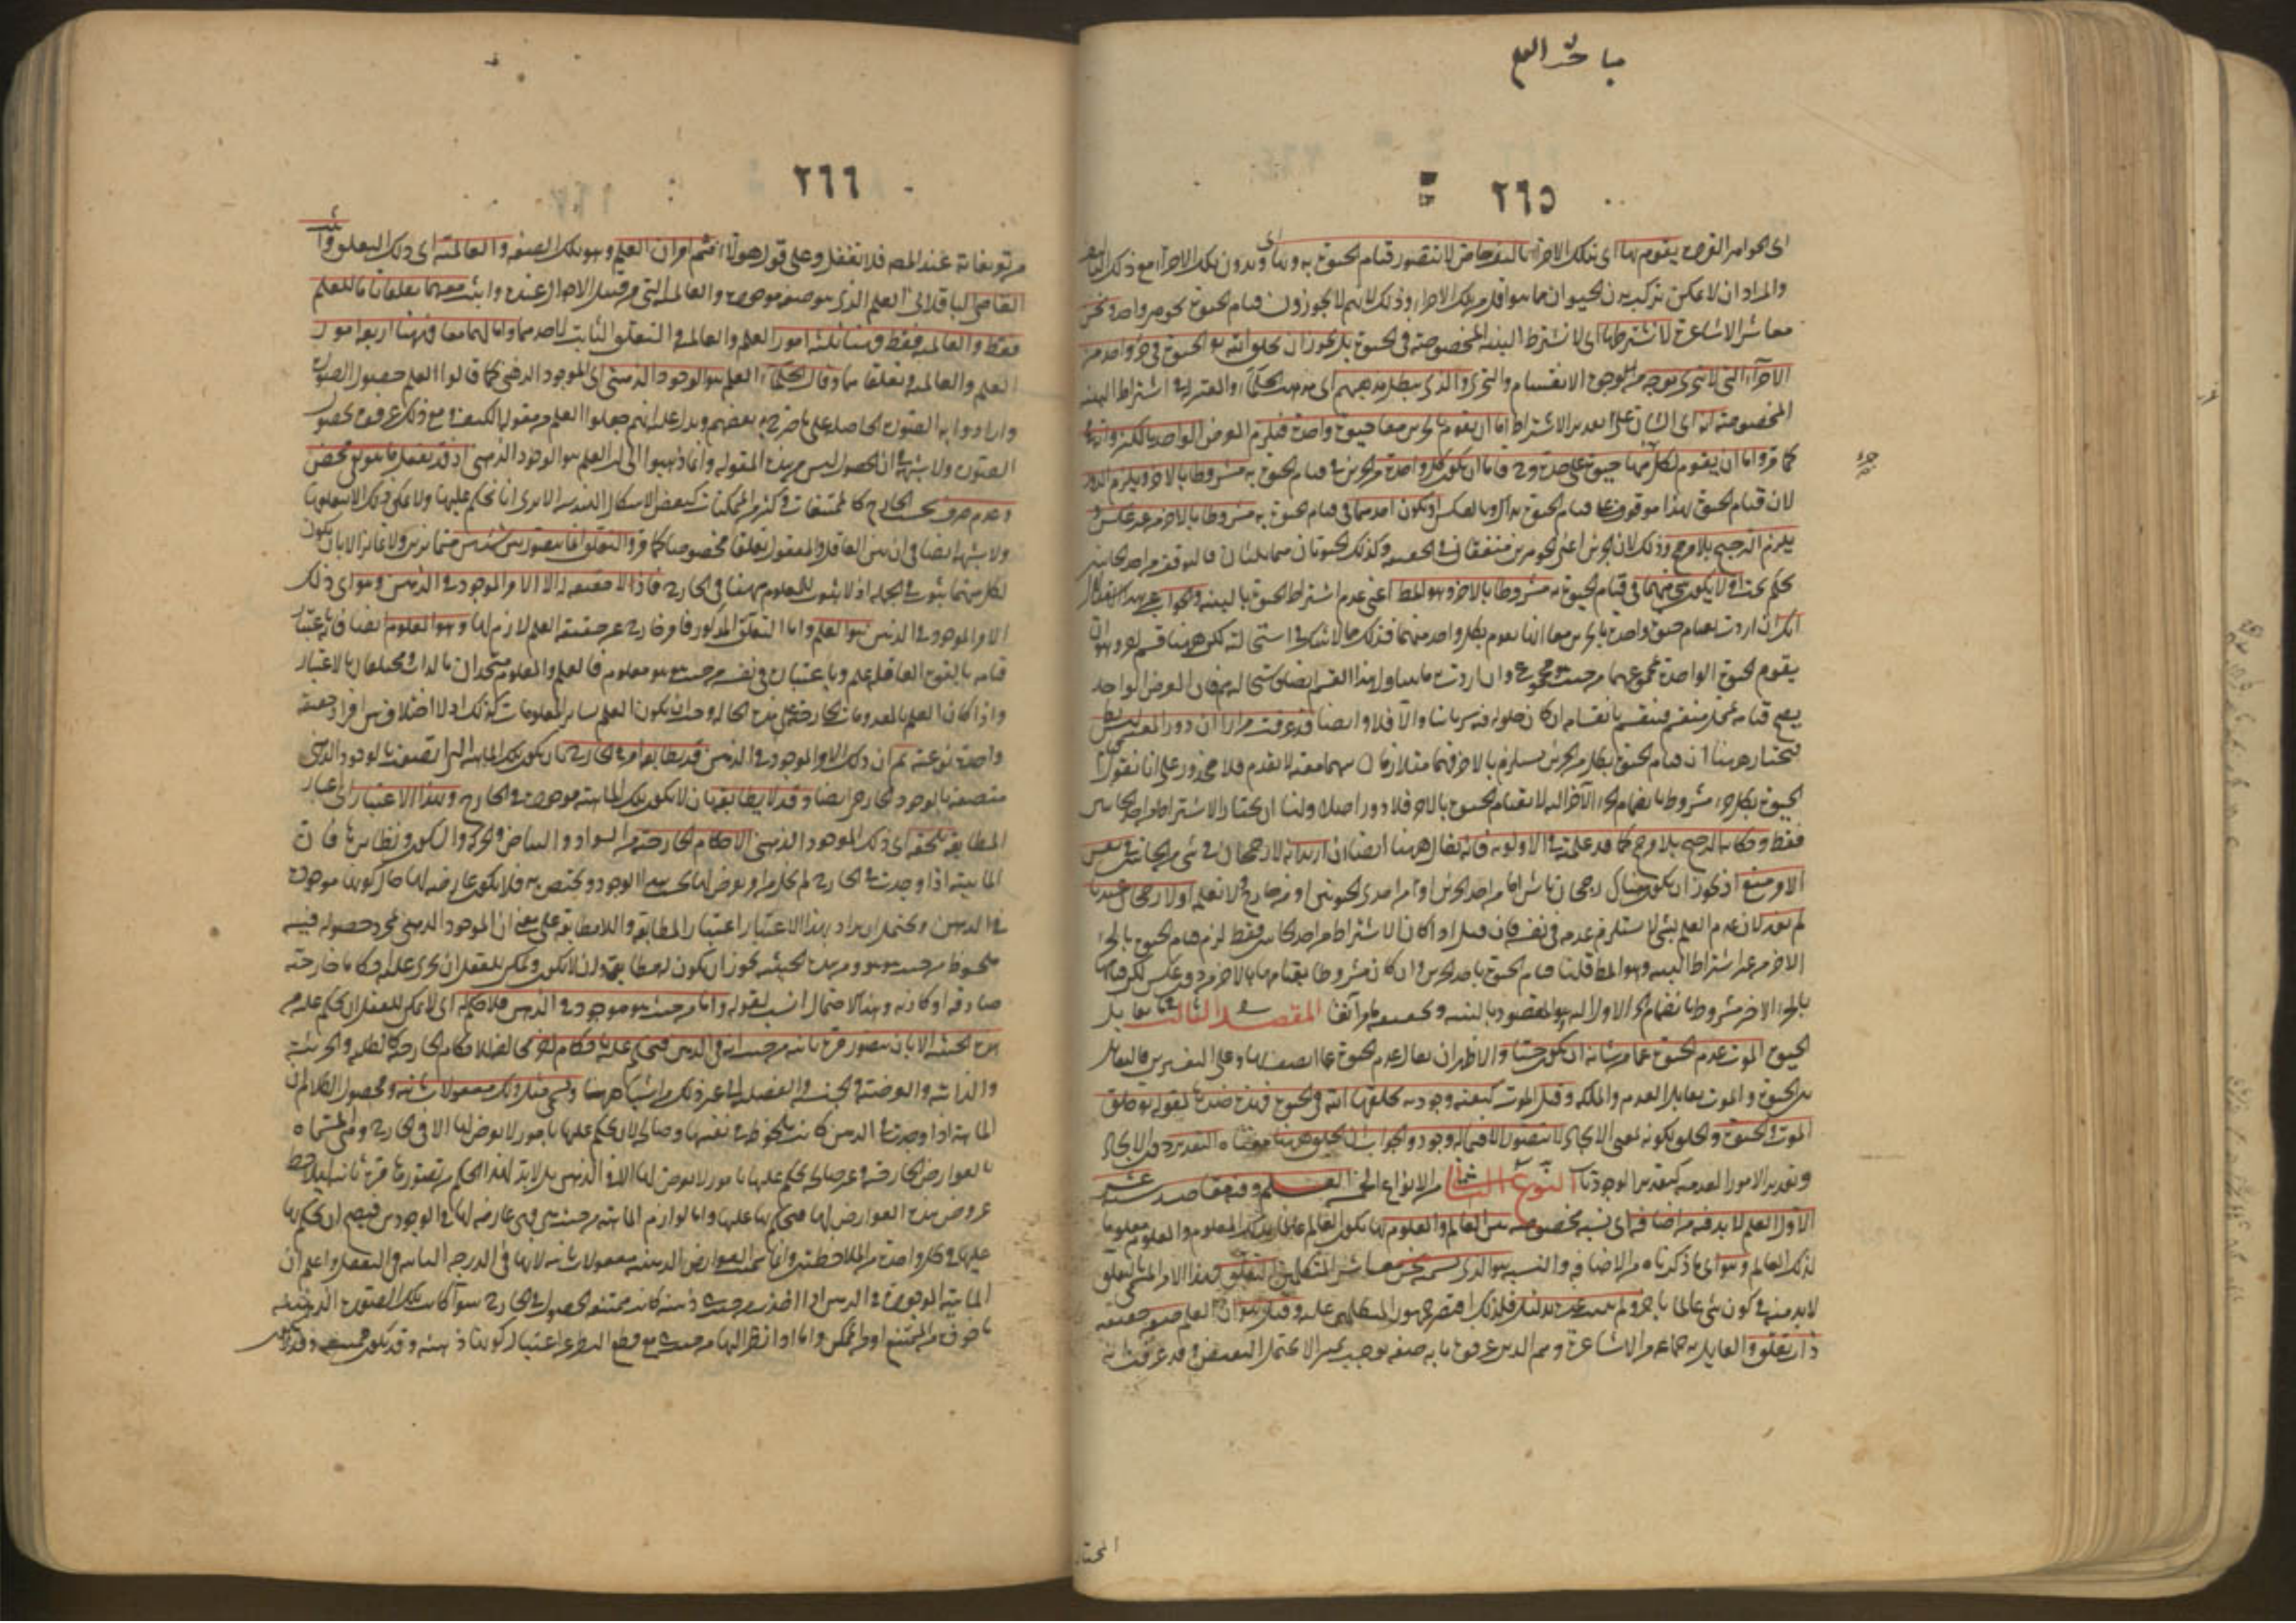 مباحث العلم
٢٦٥
اى الجواهر الفردة يقوم بها اى بتلك الاجزاء تاليف خاص لا يتصور قيام الحيوة به وبدون تلك الاجزاء مع ذلك التاليف
والمراد ان لا يمكن تركب بدن الحيوان مما هو اقل من تلك الاجزاء وذلك لانهم لا يجوزون قيام الحيوة بجوهر واحد ونحن
معاشر الاشاعرة لا نشترطها اى لا نشترط البنية المخصوصة فى الحيوة بل يجوز ان يخلق الله الحيوة فى جزء واحد من
الاجزاء التى لا تتجزى بوجه من وجوه الانقسام والتجزى والذى يبطل مذهبهم اى مذهب الحكماء والمعتزلة فى اشتراط البنية
المخصوصة انه اى الشان على تقدير الاشتراط اما ان يقوم بالجزءين معا حيوة واحدة فيلزم قيام العرض الواحد بالكثير وانه
كما مر واما ان يقوم بكل منها حيوة على حدة وح فاما ان يكون كل واحد من الجزءين فى قيام الحيوة به مشروطا بالآخر ويلزم الدور
لان قيام الحيوة بهذا موقوف على قيام الحيوة بذاك وبالعكس او يكون احدهما فى قيام الحيوة به مشروطا بالآخر من غير عكس و
يلزم الترجيح بلا مرجح وذلك لان الجزءين اعنى الجوهرين متفقان فى الحقيقة وكذلك الحيوتان متماثلتان فالتوقف من احد الجانبين
تحكم بحت اولا يكون شئ منهما فى قيام الحيوة به مشروطا بالآخر وهو المط اعنى عدم اشتراط الحيوة بالبنية والجواب عن هذا
انك ان اردت بقيام حيوة واحدة بالجزءين معا انها تقوم بكل واحد منهما فذلك مما لا شك فى استحالته لكن ههنا قسم آخر وهو ان
يقوم الحيوة الواحدة بمجموعهما من حيث هو مجموع وان اردت ما يتناول هذا القسم ايضا فاستحالته مم فان العرض الواحد
يصح قيامه بمحل منقسم فينقسم بانقسامه ان كان حلوله فيه سريانيا والا فلا وايضا قد عرفت مرارا ان دور المعية ليس بط
فنختار ههنا ان قيام الحيوة بكل من الجزءين مستلزم بالآخر فهما متلازمان بينهما معية لا تقدم فلا محذور على انا نقول
الحيوة بكل جزء مشروط بانضمام الجزء الآخر اليه لا بقيام الحيوة بالآخر فلا دور اصلا ولنا ان نختار الاشتراط من احد الجانبين
فقط وحكاية الترجيح بلا مرجح كما قد علمته فى الاولوية فانه يقال ههنا ايضا ان اريد انه لا رجحان فى شئ من الجانبين فى نفس
الامر منع اذ يجوز ان يكون هناك رجحان ناش اما من احد الجزءين او من احدى الحيوتين او من خارج ولا نعلمه او لا رجحان عندنا
لم يفد لان عدم العلم بشئ لا يستلزم عدمه فى نفسه فان قيل اذا كان الاشتراط من احد الجانبين فقط لزم قيام الحيوة بالجزء
الآخر من غير اشتراط البنية وهو المط قلنا قيام الحيوة باحد الجزءين وان كان مشروطا بقيامها بالآخر من دون عكس لكن قيامها
بالجزء الآخر مشروط بانضمام الجزء الاول اليه وهو المقصود بالبنية وتحقيقه ما مر آنفا المقصد الثالث فيما يقابل
الحيوة الموت عدم الحيوة عما من شانه ان يكون حيا والاظهر ان يقال عدم الحيوة عما اتصف بها وعلى التفسيرين فالتقابل
بين الحيوة والموت تقابل العدم والملكة وقيل الموت كيفية وجودية يخلقها الله فى الحى فهو ضدها لقوله تع خلق
الموت والحيوة والخلق لكونه بمعنى الايجاد لا يتصور الا فيما له وجود والجواب ان الخلق ههنا معناه التقدير دون الايجاد
وتقدير الامور العدمية كتقدير الوجوديات النوع الثانى من الانواع الخمسة العلم وفيه مقاصد ستة عشر
الاول العلم لا بد فيه من اضافة اى نسبة مخصوصة بين العالم والمعلوم بها يكون العالم عالما بذلك المعلوم والمعلوم معلوما
لذلك العالم وهو اى ما ذكرناه من الاضافة والنسبة هو الذى نسميه نحن معاشر المتكلمين التعلق وهذا الامر المسمى بالتعلق
لا بد منه فى كون شئ عالما بآخر ولم يثبت غيره بدليل فلذلك اقتصر جمهور المتكلمين عليه وقيل هو اى العلم صفة حقيقية
ذات تعلق والقائل به جماعة من الاشاعرة وهم الذين عرفوه بانه صفة توجب تمييزا لا يحتمل النقيض وقد عرفت انه
المختار
٢٦٦
من تعريفاته عند المصر فلا تغفل وعلى قول هؤلاء فثم امران العلم وهو تلك الصفة والعالمية اى ذلك التعلق واثبت
القاضى الباقلانى العلم الذى هو صفة موجودة والعالمية التى هى من قبيل الاحوال عنده واثبت معهما تعلقا فاما للعلم
فقط او للعالمية فقط فههنا ثلثة امور العلم والعالمية والتعلق الثابت لاحدهما واما لهما معا فههنا اربعة امور
العلم والعالمية وتعلقاهما وقال الحكماء العلم هو الوجود الذهنى اى الموجود الذهنى كما قالوا العلم حصول الصورة
وارادوا به الصورة الحاصلة على ما صرح به بعضهم ويدل عليه انهم جعلوا العلم من مقولة الكيف ومع ذلك عرفوه بحصول
الصورة ولا شبهة فى ان الحصول ليس من هذه المقولة وانما ذهبوا الى ان العلم هو الوجود الذهنى اذ قد يعقل ما هو نفى محض
وعدم صرف بحسب الخارج كالممتنعات وكثير من الممكنات كبعض الاشكال الهندسية الا يرى انا نحكم عليها ولا يمكن ذلك الا بتعلقها
ولا شبهة ايضا فى ان بين العاقل والمعقول تعلقا مخصوصا كما مر والتعلق انما يتصور بين شيئين متمايزين ولا تمايز الا بان يكون
لكل منهما ثبوت فى الجملة اذ لا ثبوت للمعلوم ههنا فى الخارج فاذا لا حقيقة له الا الامر الموجود فى الذهن وهو اى ذلك
الامر الموجود فى الذهن هو العلم واما التعلق المذكور فامر خارج عن حقيقة العلم لازم لها وهو المعلوم ايضا فانه باعتبار
قيامه بالقوة العاقلة علم وباعتباره فى نفسه من حيث هو هو معلوم فالعلم والمعلوم متحدان بالذات ومختلفان بالاعتبار
واذا كان العلم بالمعدومات الخارجية على هذه الحالة وجب ان يكون العلم بسائر المعلومات كذلك اذ لا اختلاف بين افراد حقيقة
واحدة نوعية ثم ان ذلك الامر الموجود فى الذهن قد يطابقه امر فى الخارج بان يكون تلك الماهية التى اتصفت بالوجود الذهنى
متصفة بالوجود الخارجى ايضا وقد لا يطابقه بان لا يكون تلك الماهية موجودة فى الخارج وبهذا الاعتبار اى اعتبار
المطابقة تلحقه اى ذلك الموجود الذهنى الاحكام الخارجية من السواد والبياض والحركة والسكون ونظائرها فان
الماهية اذا وجدت فى الخارج لم تخل من امر يعرض لها بحسب هذا الوجود ويختص به فلا يكون عارضا لها حال كونها موجودة
فى الذهن ويحتمل ان يراد بهذا الاعتبار اعتبار المطابقة واللامطابقة على معنى ان الموجود الذهنى مجرد حصوله فيه
ملحوظا من حيث هو هو ومن هذه الحيثية يجوز ان يكون له مطابق وان لا يكون ويمكن للعقل ان يجرى عليه احكاما خارجية
صادقة او كاذبة وهذا الاحتمال انسب لقوله واما من حيث هو موجود فى الذهن فلا حكم له اى لا يمكن للعقل ان يحكم عليه من
هذه الحيثية الا بان يتصور مرة ثانية من حيث انه فى الذهن فيحكم عليه باحكام اخر مخالفة للاحكام الخارجية كالكلية والجزئية
والذاتية والعرضية والجنسية والفصلية الى غير ذلك من اشباهها ويسمى مثل ذلك معقولات ثانية ومحصول الكلام ان
الماهية اذا وجدت فى الذهن كانت ملحوظة فى نفسها وصالحة لان يحكم عليها بامور لا يعرض لها الا فى الخارج وهى المسماة
بالعوارض الخارجية وغير صالحة لان يحكم عليها بامور لا يعرض لها الا فى الذهن بل لا بد لهذا الحكم من تصورها مرة ثانية ليلاحظ
عروض هذه العوارض لها فيحكم بها عليها واما لوازم الماهية من حيث هى فهى عارضة لها فى الوجودين فيصح ان يحكم بها
عليها فى كل واحدة من الملاحظتين وانما سميت العوارض الذهنية معقولات ثانية لانها فى الدرجة الثانية من التعقل واعلم ان
الماهية الموجودة فى الذهن اذا اخذت من حيث هى ذهنية كانت ممتنعة الحصول فى الخارج سواء كانت تلك الصورة الذهنية
ماخوذة من الممتنع او من الممكن واما اذا نظر اليها من حيث هى مع قطع النظر عن اعتبار كونها ذهنية فقد يكون ممتنعة وقد لا يكون